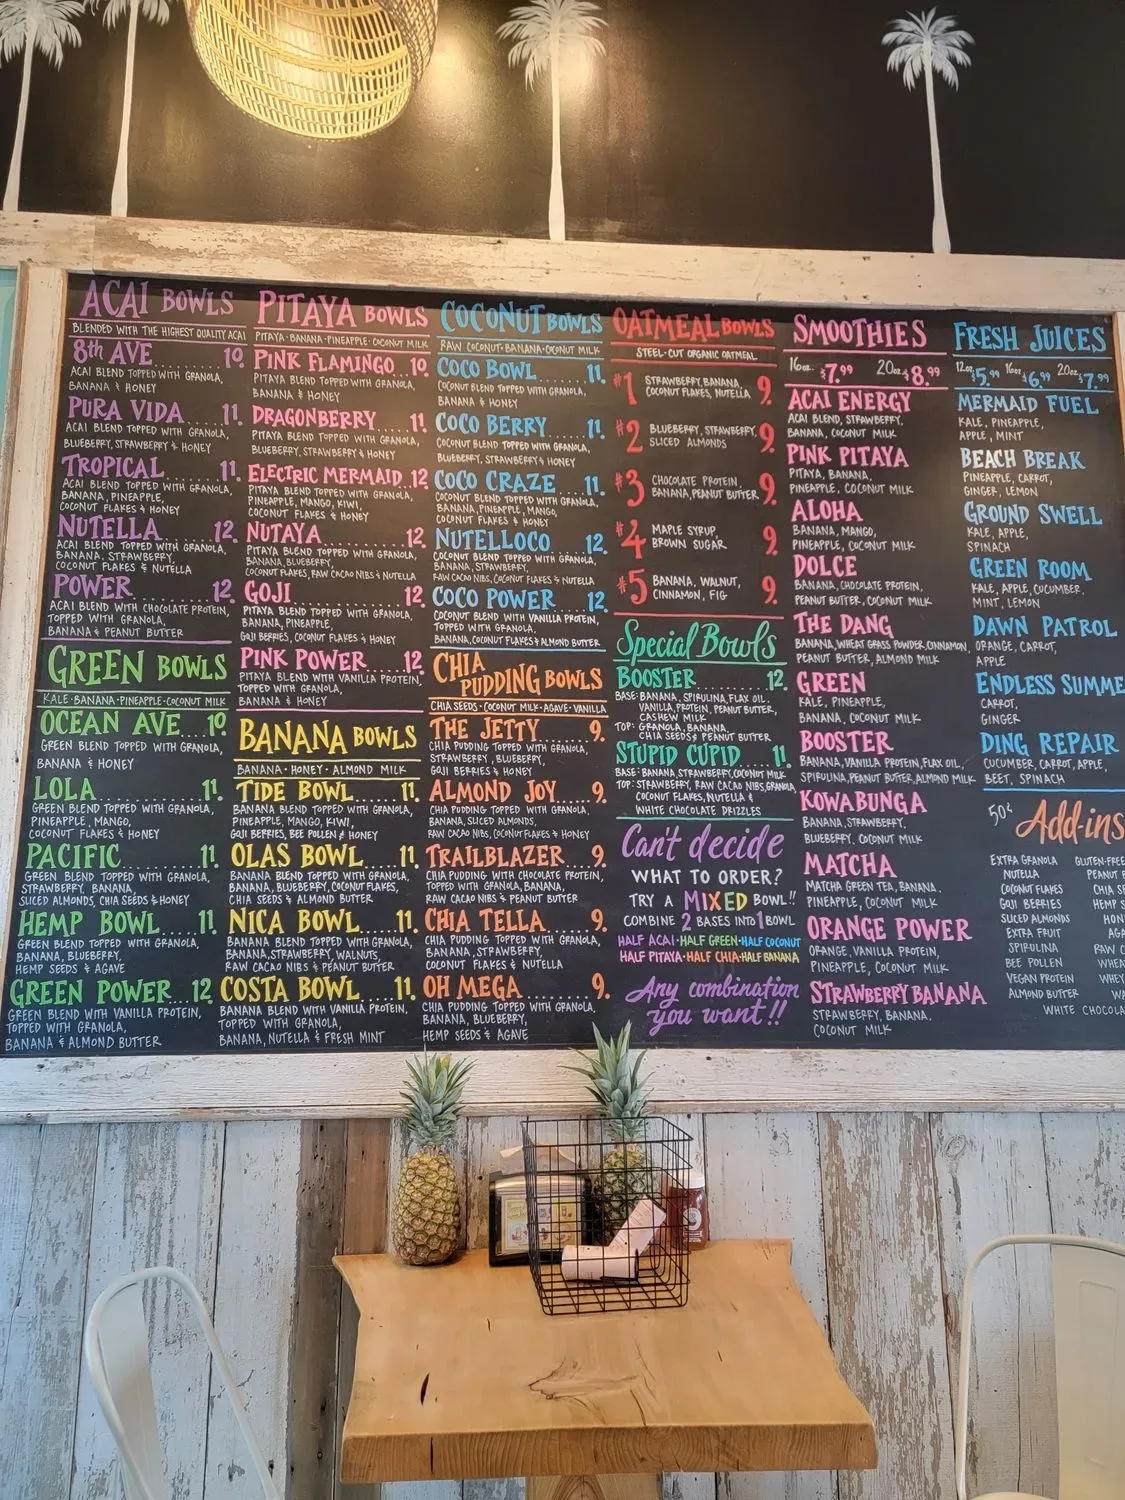 ACAI BOWLS
BLENDED WITH THE HIGHEST QUALITY ACAI
8th AVE 10.
ACAI BLEND TOPPED WITH GRANOLA,
BANANA & HONEY
PURA VIDA 11.
ACAI BLEND TOPPED WITH GRANOLA,
BLUEBERRY, STRAWBERRY & HONEY
TROPICAL 11.
ACAI BLEND TOPPED WITH GRANOLA,
BANANA, PINEAPPLE,
COCONUT FLAKES & HONEY
NUTELLA 12.
ACAI BLEND TOPPED WITH GRANOLA,
BANANA, STRAWBERRY,
COCONUT FLAKES & NUTELLA
POWER 12.
ACAI BLEND WITH CHOCOLATE PROTEIN,
TOPPED WITH GRANOLA,
BANANA & PEANUT BUTTER
GREEN BOWLS
KALE·BANANA·PINEAPPLE·COCONUT MILK
OCEAN AVE 10.
GREEN BLEND TOPPED WITH GRANOLA,
BANANA & HONEY
LOLA 11.
GREEN BLEND TOPPED WITH GRANOLA,
PINEAPPLE, MANGO,
COCONUT FLAKES & HONEY
PACIFIC 11.
GREEN BLEND TOPPED WITH GRANOLA,
STRAWBERRY, BANANA,
SLICED ALMONDS, CHIA SEEDS & HONEY
HEMP BOWL 11.
GREEN BLEND TOPPED WITH GRANOLA,
BANANA, BLUEBERRY,
HEMP SEEDS & AGAVE
GREEN POWER 12
GREEN BLEND WITH VANILLA PROTEIN,
TOPPED WITH GRANOLA,
BANANA & ALMOND BUTTER
PITAYA BOWLS
PITAYA·BANANA·PINEAPPLE·COCONUT MILK
PINK FLAMINGO 10.
PITAYA BLEND TOPPED WITH GRANOLA,
BANANA & HONEY
DRAGONBERRY 11.
PITAYA BLEND TOPPED WITH GRANOLA,
BLUEBERRY, STRAWBERRY & HONEY
ELECTRIC MERMAID 12
PITAYA BLEND TOPPED WITH GRANOLA,
PINEAPPLE, MANGO, KIWI,
COCONUT FLAKES & HONEY
NUTAYA 12.
PITAYA BLEND TOPPED WITH GRANOLA,
BANANA, BLUEBERRY,
COCONUT FLAKES, RAW CACAO NIBS & NUTELLA
GOJI 12.
PITAYA BLEND TOPPED WITH GRANOLA,
BANANA, PINEAPPLE,
GOJI BERRIES, COCONUT FLAKES & HONEY
PINK POWER 12.
PITAYA BLEND WITH VANILLA PROTEIN,
TOPPED WITH GRANOLA,
BANANA & HONEY
BANANA BOWLS
BANANA·HONEY·ALMOND MILK
TIDE BOWL 11.
BANANA BLEND TOPPED WITH GRANOLA,
PINEAPPLE, MANGO, KIWI,
GOJI BERRIES, BEE POLLEN & HONEY
OLAS BOWL 11.
BANANA BLEND TOPPED WITH GRANOLA,
BANANA, BLUEBERRY, COCONUT FLAKES,
CHIA SEEDS & ALMOND BUTTER
NICA BOWL 11.
BANANA BLEND TOPPED WITH GRANOLA,
BANANA, STRAWBERRY, WALNUTS,
RAW CACAO NIBS & PEANUT BUTTER
COSTA BOWL 11.
BANANA BLEND WITH VANILLA PROTEIN,
TOPPED WITH GRANOLA,
BANANA, NUTELLA & FRESH MINT
COCONUT BOWLS
RAW COCONUT·BANANA·COCONUT MILK
COCO BOWL 11.
COCONUT BLEND TOPPED WITH GRANOLA,
BANANA & HONEY
COCO BERRY 11.
COCONUT BLEND TOPPED WITH GRANOLA,
BLUEBERRY, STRAWBERRY & HONEY
COCO CRAZE 11.
COCONUT BLEND TOPPED WITH GRANOLA,
BANANA, PINEAPPLE, MANGO,
COCONUT FLAKES & HONEY
NUTELLOCO 12.
COCONUT BLEND TOPPED WITH GRANOLA,
BANANA, STRAWBERRY,
RAW CACAO NIBS, COCONUT FLAKES & NUTELLA
COCO POWER 12.
COCONUT BLEND WITH VANILLA PROTEIN,
TOPPED WITH GRANOLA,
BANANA, COCONUT FLAKES & ALMOND BUTTER
CHIA PUDDING BOWLS
CHIA SEEDS·COCONUT MILK·AGAVE·VANILLA
THE JETTY 9.
CHIA PUDDING TOPPED WITH GRANOLA,
STRAWBERRY, BLUEBERRY,
GOJI BERRIES & HONEY
ALMOND JOY 9.
CHIA PUDDING TOPPED WITH GRANOLA,
BANANA, SLICED ALMONDS,
RAW CACAO NIBS, COCONUT FLAKES & HONEY
TRAILBLAZER 9.
CHIA PUDDING WITH CHOCOLATE PROTEIN,
TOPPED WITH GRANOLA, BANANA,
RAW CACAO NIBS & PEANUT BUTTER
CHIA TELLA 9.
CHIA PUDDING TOPPED WITH GRANOLA,
BANANA, STRAWBERRY,
COCONUT FLAKES & NUTELLA
OH MEGA 9.
CHIA PUDDING TOPPED WITH GRANOLA,
BANANA, BLUEBERRY,
HEMP SEEDS & AGAVE
OATMEAL BOWLS
STEEL-CUT ORGANIC OATMEAL
#1 STRAWBERRY, BANANA, 9.
COCONUT FLAKES, NUTELLA
#2 BLUEBERRY, STRAWBERRY, 9.
SLICED ALMONDS
#3 CHOCOLATE PROTEIN, 9.
BANANA, PEANUT BUTTER
#4 MAPLE SYRUP, 9.
BROWN SUGAR
#5 BANANA, WALNUT, 9.
CINNAMON, FIG
Special Bowls
BOOSTER 12.
BASE: BANANA, SPIRULINA, FLAX OIL,
VANILLA PROTEIN, PEANUT BUTTER,
CASHEW MILK
TOP: GRANOLA, BANANA,
CHIA SEEDS & PEANUT BUTTER
STUPID CUPID 11.
BASE: BANANA, STRAWBERRY, COCONUT MILK
TOP: STRAWBERRY, RAW CACAO NIBS, GRANOLA,
COCONUT FLAKES, NUTELLA &
WHITE CHOCOLATE DRIZZLES
Can't decide
WHAT TO ORDER?
TRY A MIXED BOWL!!
COMBINE 2 BASES INTO 1 BOWL
HALF ACAI·HALF GREEN·HALF COCONUT
HALF PITAYA·HALF CHIA·HALF BANANA
Any combination
you want!!
SMOOTHIES
16oz. $7.99 20oz $8.99
ACAI ENERGY
ACAI BLEND, STRAWBERRY,
BANANA, COCONUT MILK
PINK PITAYA
PITAYA, BANANA,
PINEAPPLE, COCONUT MILK
ALOHA
BANANA, MANGO,
PINEAPPLE, COCONUT MILK
DOLCE
BANANA, CHOCOLATE PROTEIN,
PEANUT BUTTER, COCONUT MILK
THE DANG
BANANA, WHEAT GRASS POWDER, CINNAMON,
PEANUT BUTTER, ALMOND MILK
GREEN
KALE, PINEAPPLE,
BANANA, COCONUT MILK
BOOSTER
BANANA, VANILLA PROTEIN, FLAX OIL,
SPIRULINA, PEANUT BUTTER, ALMOND MILK
KOWABUNGA
BANANA, STRAWBERRY,
BLUEBERRY, COCONUT MILK
MATCHA
MATCHA GREEN TEA, BANANA,
PINEAPPLE, COCONUT MILK
ORANGE POWER
ORANGE, VANILLA PROTEIN,
PINEAPPLE, COCONUT MILK
STRAWBERRY BANANA
STRAWBERRY, BANANA,
COCONUT MILK
FRESH JUICES
12oz $5.99 16oz $6.99 20oz $7.99
MERMAID FUEL
KALE, PINEAPPLE,
APPLE, MINT
BEACH BREAK
PINEAPPLE, CARROT,
GINGER, LEMON
GROUND SWELL
KALE, APPLE,
SPINACH
GREEN ROOM
KALE, APPLE, CUCUMBER,
MINT, LEMON
DAWN PATROL
ORANGE, CARROT,
APPLE
ENDLESS SUMME
CARROT,
GINGER
DING REPAIR
CUCUMBER, CARROT, APPLE,
BEET, SPINACH
50¢ Add-ins
EXTRA GRANOLA GLUTEN-FREE
NUTELLA PEANUT B
COCONUT FLAKES CHIA SE
GOJI BERRIES HEMP S
SLICED ALMONDS HON
EXTRA FRUIT AGA
SPIRULINA RAW C
BEE POLLEN WHEA
VEGAN PROTEIN WHEY
ALMOND BUTTER WA
WHITE CHOCOLA